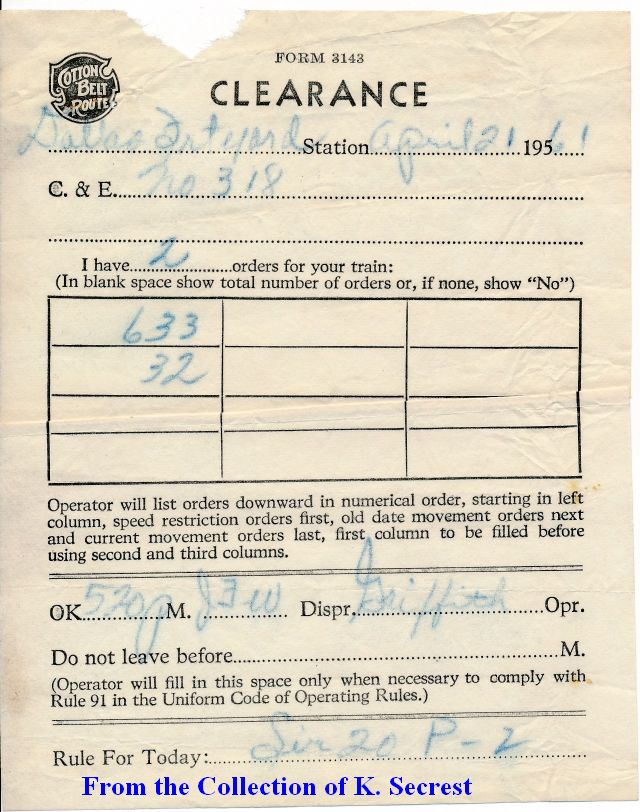 FORM 3143
COTTON BELT ROUTE
CLEARANCE
Dallas Frt yard Station April 21 1956 1
C. & E. No 318
I have 2 orders for your train:
(In blank space show total number of orders or, if none, show “No”)
633
32
Operator will list orders downward in numerical order, starting in left
column, speed restriction orders first, old date movement orders next
and current movement orders last, first column to be filled before
using second and third columns.
OK 520p M. JFW Dispr. Griffith Opr.
Do not leave before M.
(Operator will fill in this space only when necessary to comply with
Rule 91 in the Uniform Code of Operating Rules.)
Rule For Today: 20 P-2
From the Collection of K. Secrest